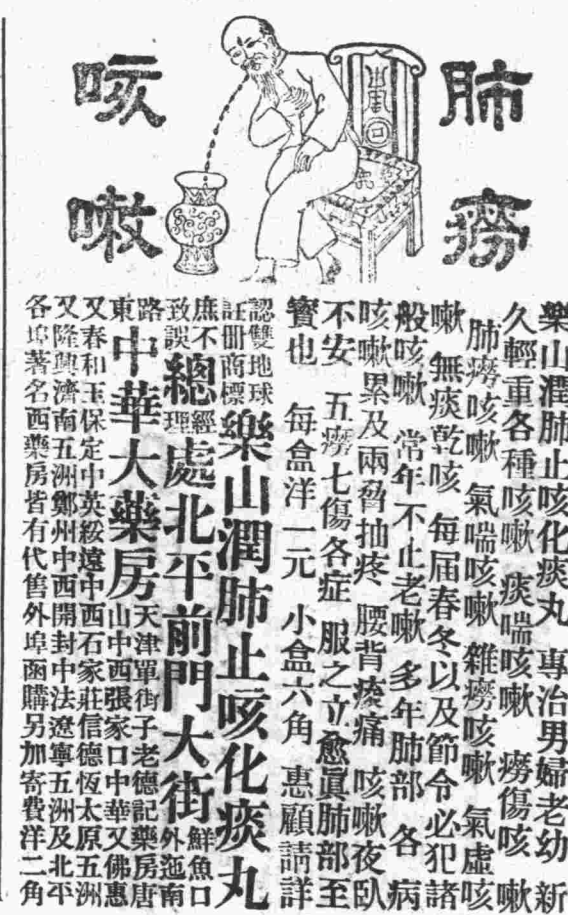 肺癆
咳嗽
樂山潤肺止咳化痰丸 專治男婦老幼 新
久輕重各種咳嗽 痰喘咳嗽 癆傷咳嗽
肺癆咳嗽 氣喘咳嗽 雜癆咳嗽 氣虛咳
嗽 無痰乾咳 每届春冬以及節令必犯諸
般咳嗽 常年不止老嗽 多年肺部 各病
咳嗽累及兩脅抽疼 腰背痠痛 咳嗽夜臥
不安 五癆七傷各症 服之立愈眞肺部至
寳也 每盒洋一元 小盒六角 惠顧請詳
認雙地球
註册商標
樂山潤肺止咳化痰丸
庶不
致誤
總經理處北平前門大街
鮮魚口
外迤南
路
東
中華大藥房
天津單街子老德記藥房唐
山中西張家口中華又佛惠
又春和玉保定中英綏遠中西石家莊信德恆太原五洲
又隆興濟南五洲鄭州中西開封中法遼寧五洲及北平
各埠著名西藥房皆有代售外埠函購另加寄費洋二角